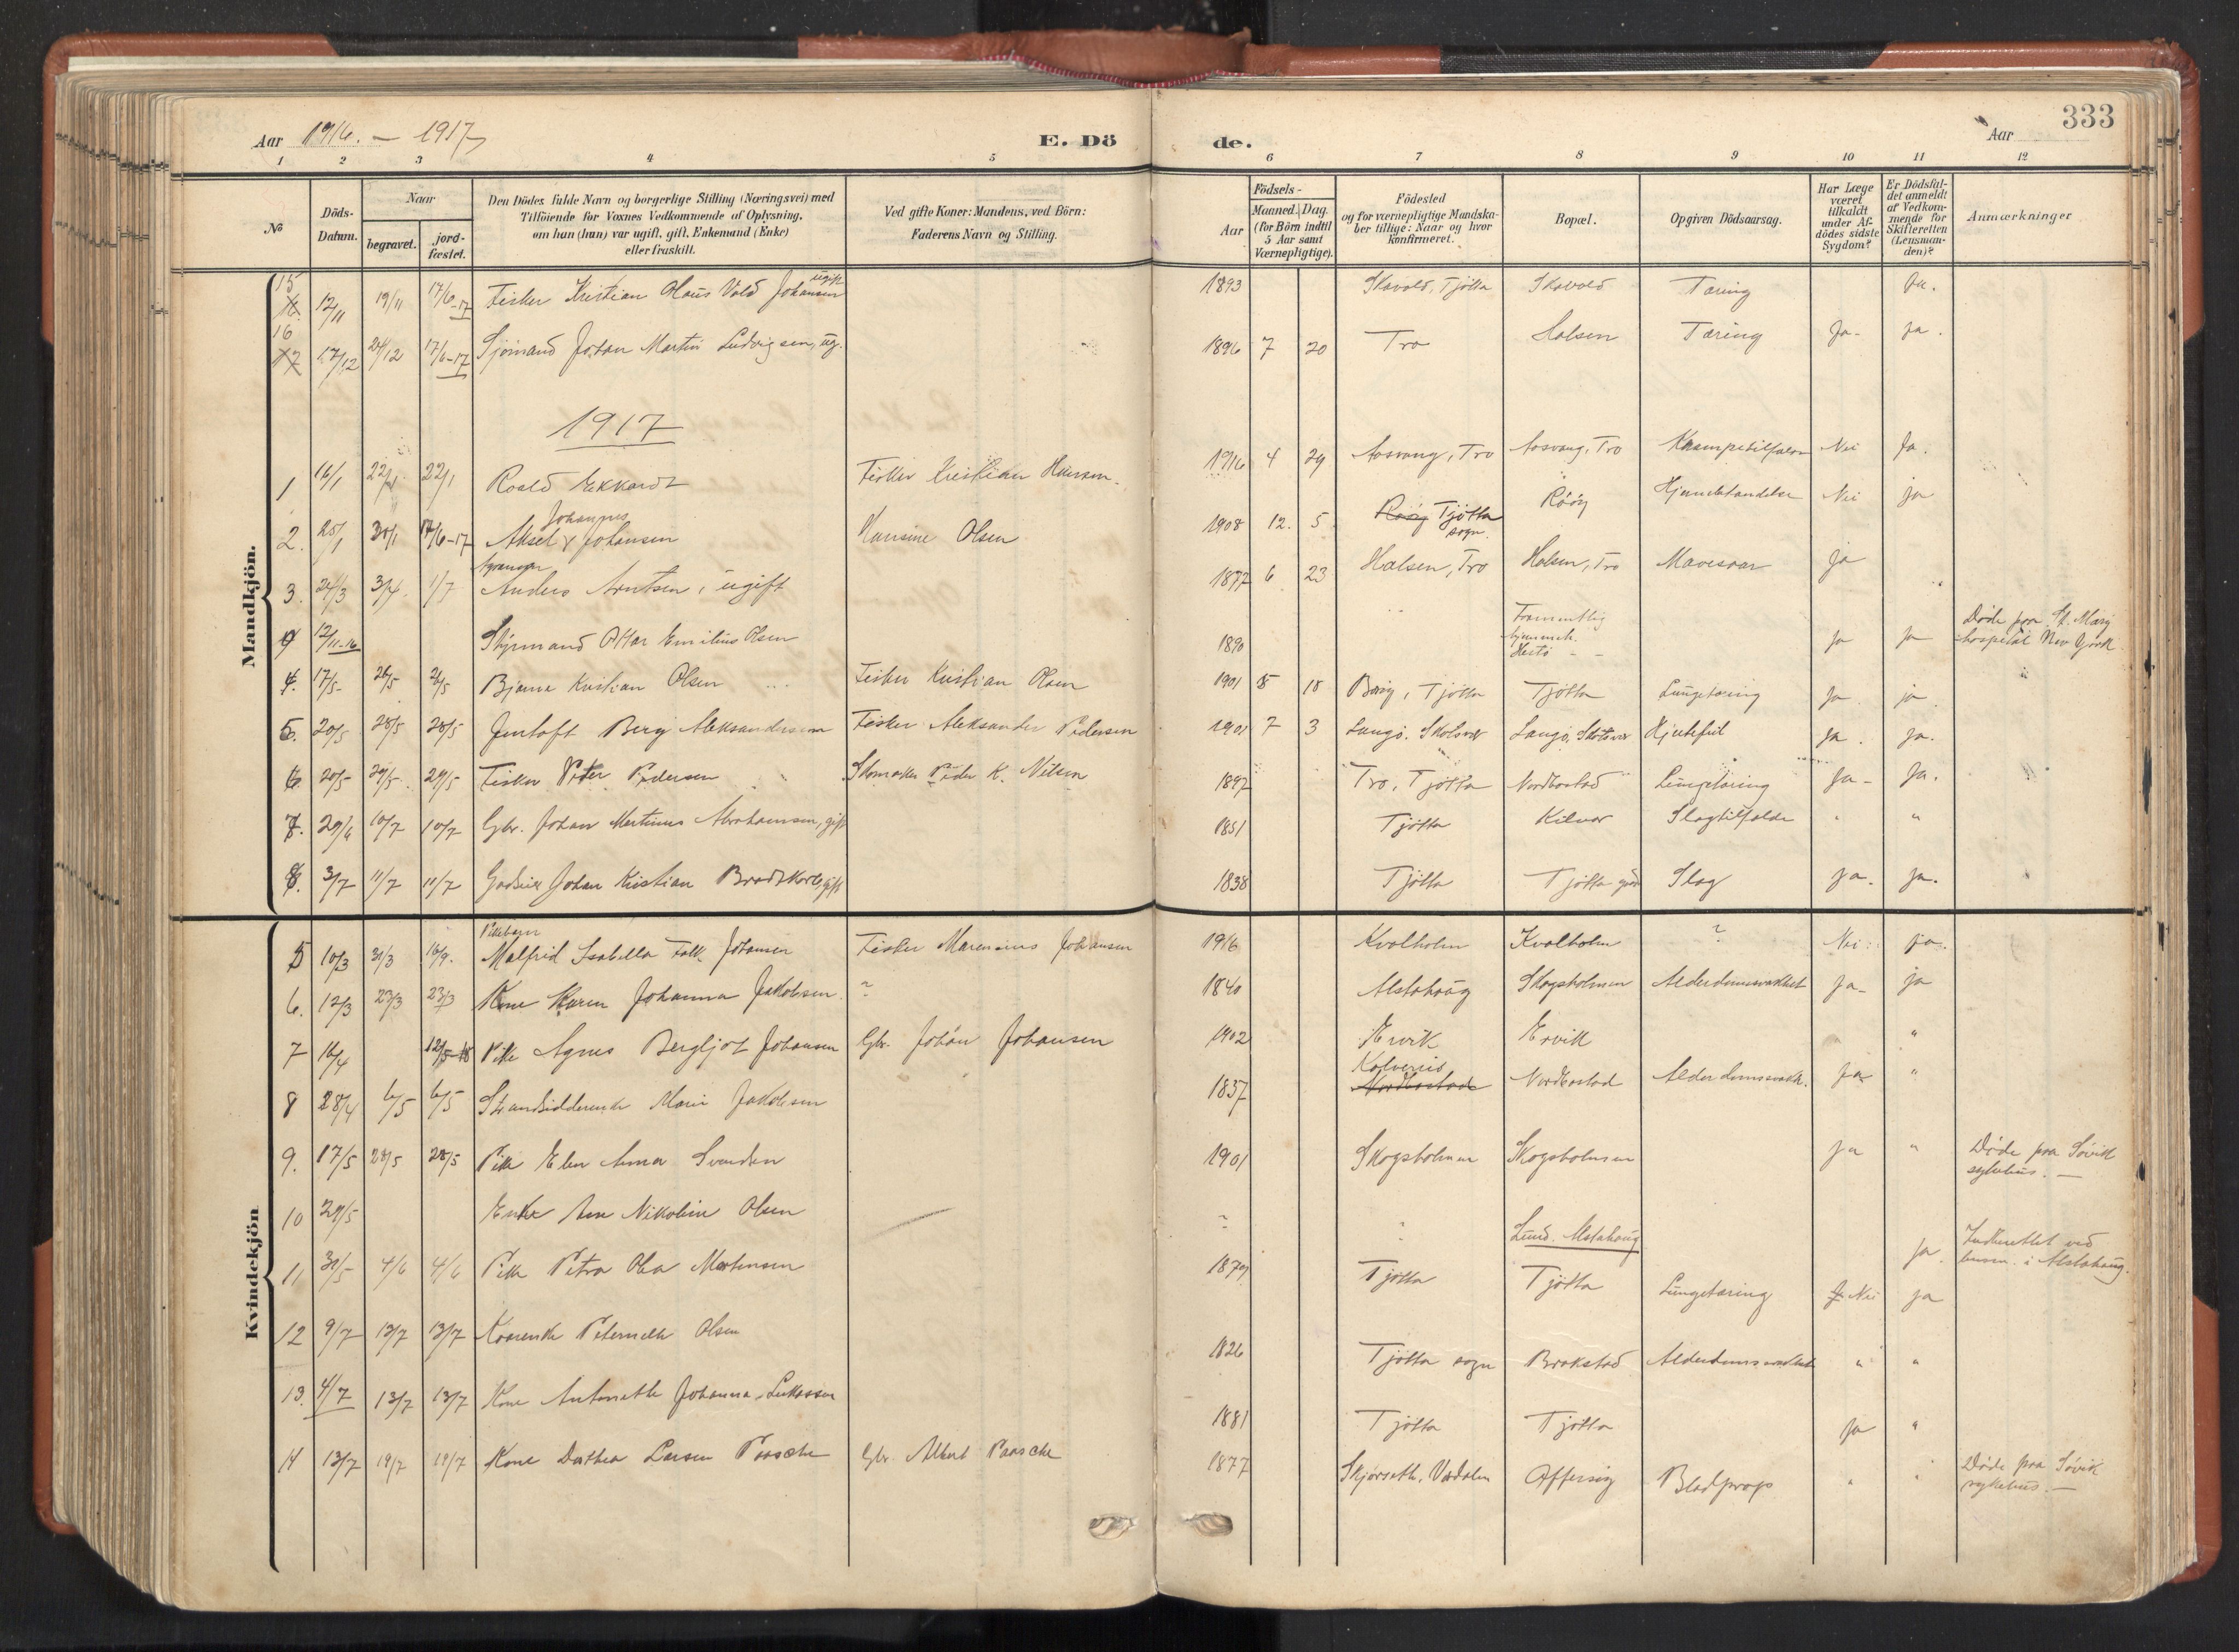 333
Aar 1916. – 1917 E. Dö de. Aar
1 2 3 4 5 6 7 8 9 10 11 12
№
Döds-Datum.
Naar
begravet.
jord-fæstet.
Den Dödes fulde Navn og borgerlige Stilling (Næringsvei) med
Tilföiende for Voxnes Vedkommende af Oplysning,
om han (hun) var ugift, gift, Enkemand (Enke)
eller fraskilt.
Ved gifte Koner: Mandens, ved Börn:
Faderens Navn og Stilling.
Födsels-
Aar
Maaned. Dag.
(for Börn indtil
5 Aar samt
Værnepligtige).
Födested
og for værnepligtige Mandska-
ber tillige: Naar og hvor
konfirmeret.
Bopæl.
Opgiven Dödsaarsag.
Har Læge
været
tilkaldt
under Af-
dödes sidste
Sygdom?
Er Dödsfal-
det anmeldt
af Vedkom-
mende for
Skifteretten
(Lensman-
den)?
Anmærkninger
Mandkjön.
15 12/11 19/11 17/6-17 Fisker Kristian Olaus Vold Johansen ugift 1893 Skavold, Tjötta Skavold Tæring Ja.
16 17/12 24/12 17/6-17 Sjömand Johan Martin Ludvigsen, ug. 1896 7 20 Tro Halsen Tæring Ja- ja.
1917
1 16/1 22/1 22/1 Roald Ekkardt Fisker Kristian Hansen. 1916 4 29 Aasvang, Tro Aasvang, Tro Krampetilfælde Nei Ja.
2. 25/1 30/1 17/6-17 Aksel Johannes Johansen Hansine Olsen 1908 12. 5 Tjötta sogn. Röög Hjernebetændelse Nei ja
3. 24/3 3/4 1/7 Anders Arntsen, ugift 1877 6 23 Halsen, Tro Halsen, Tro Mavesaar ja
12/11-16 Styrmand Ottar Emilius Olsen 1890 hjemmeh. ja ja Döde paa St. Mary hospital New York
4. 17/5 26/5 26/5 Bjarne Kristian Olsen Fisker Kristian Olsen 1901 8 18 Tjötta Tjötta Lungetæring Ja ja
5. 20/5 28/5 28/5 Jentoft Berg Aleksandersen Fisker Aleksander Pedersen 1901 7 3 Langö. Skotsvær Langö, Skotsvær Hjertefeil Ja. ja.
6. 20/5 29/5 29/5 Fisker Peter Pedersen Skomaker Peder K. Nilsen 1897 Tro, Tjötta Nordbostad Lungetæring Ja- Ja.
7. 29/6 10/7 10/7 Gbr. Johan Martinus Abrahamsen, gift 1851 Tjötta Kilvær Slagtilfælde " "
8. 3/7 11/7 11/7 Johan Kristian Brodtkorb, gift 1838 Tjötta Tjötta gård Slag ja. ja.
Kvindekjön
5 10/3 31/3 16/9. Pikebarn Malfrid Isabella Falk Johansen Fisker Marensius Johansen 1916 Kvalholm Kvalholm ? Nei ja.
6. 12/3 23/3 23/3 Kone Karen Johanna Jakobsen ? 1840 Alstahaug Skogsholmen Alderdomssvakhet Ja- ja
7 16/4 12/5-18 Pike Agnes Bergljot Johansen Gbr. Johan Johansen 1902 Ervik Ervik "
8 28/4 6/5 6/5 Strandsidderenke Marie Jakobsen 1837 Nordbostad Alderdomssvakh. Ja "
9. 17/5 28/5 28/5 Pike Elen Anna Svendsen 1901 Skogsholmen Skogsholmen ja " Döde paa Sövik sykehus. —
10 29/5 Enke Ane Nikoline Olsen ? " Lund. Alstahaug ja i Alstahaug.
11 31/5 4/6 4/6 Pike Petra Olea Martensen 1879 Tjötta Tjötta Lungetæring Nei ja
12 9/7 13/7 13/7 Petternelle Olsen 1826 Tjötta sogn Brakstad Alderdomssvakhet " "
13. 4/7 13/7 13/7 Kone Antonette Johanna Lukassen 1881 Tjötta Tjötta ja "
14 13/7 19/7 19/7 Kone Dorthea Larsen Paasche Gbr. Albert Paasche 1877 Skjörseth, Værdalen Offersöy Blodprop " " Döde paa Sövik sykehus. —